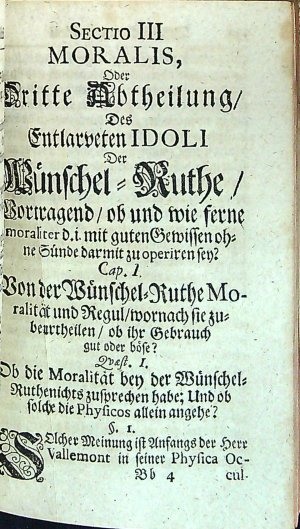 SECTIO III
MORALIS,
Oder
Dritte Abtheilung/
Des
Entlarveten IDOLI
Der
Wünschel-Ruthe/
Vortragend/ ob und wie ferne
moraliter d.i. mit guten Gewissen oh-
ne Sünde darmit zu operiren sey?
Cap. I.
Von der Wünschel-Ruthe Mo-
ralität und Regul/ wornach sie zu-
beurtheilen/ ob ihr Gebrauch
gut oder böse?
Quæst. I.
Ob die Moralität bey der Wünschel-
Ruthe nichts zusprechen habe; Und ob
solche die Physicos allein angehe?
§. 1.
SOlcher Meinung ist Anfangs der Herr
Vallemont in seiner Physica Oc-
Bb 4 cul-